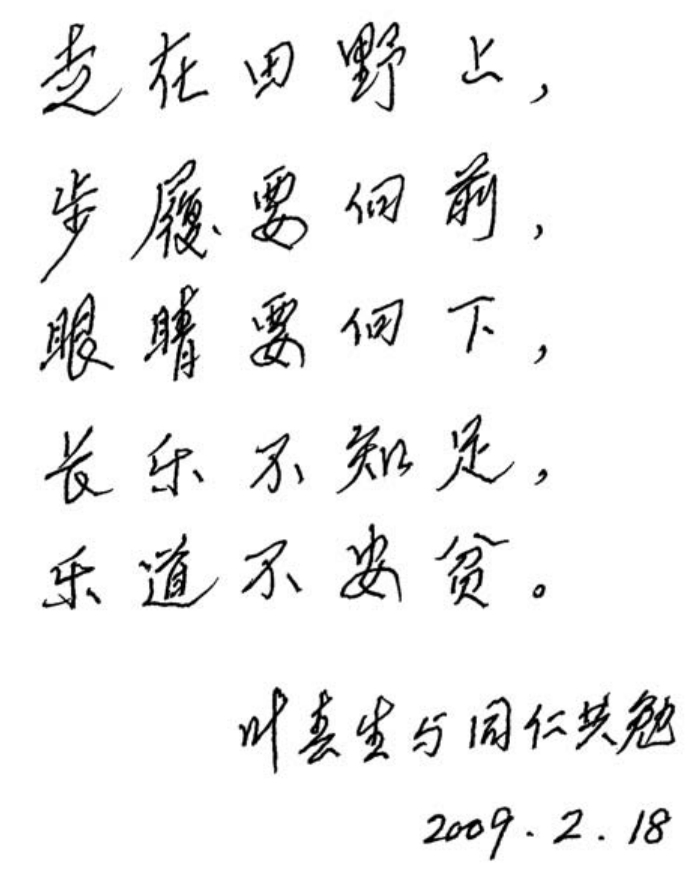 走在田野上，
步履要向前，
眼睛要向下，
长乐不知足，
乐道不安贫。
叶春生与同仁共勉
2009.2.18